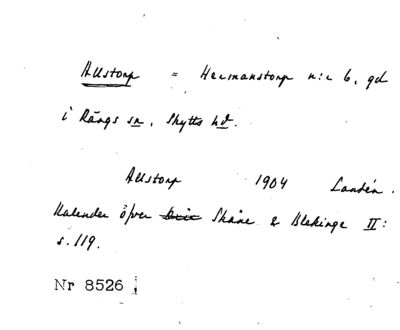 Allstorp = Hermanstorp n:r 6, gd
i Rängs sn, Skytts hd.
Allstorp 1904 Landén.
Kalender öfver Skåne & Blekinge II:
s. 119.
Nr 8526